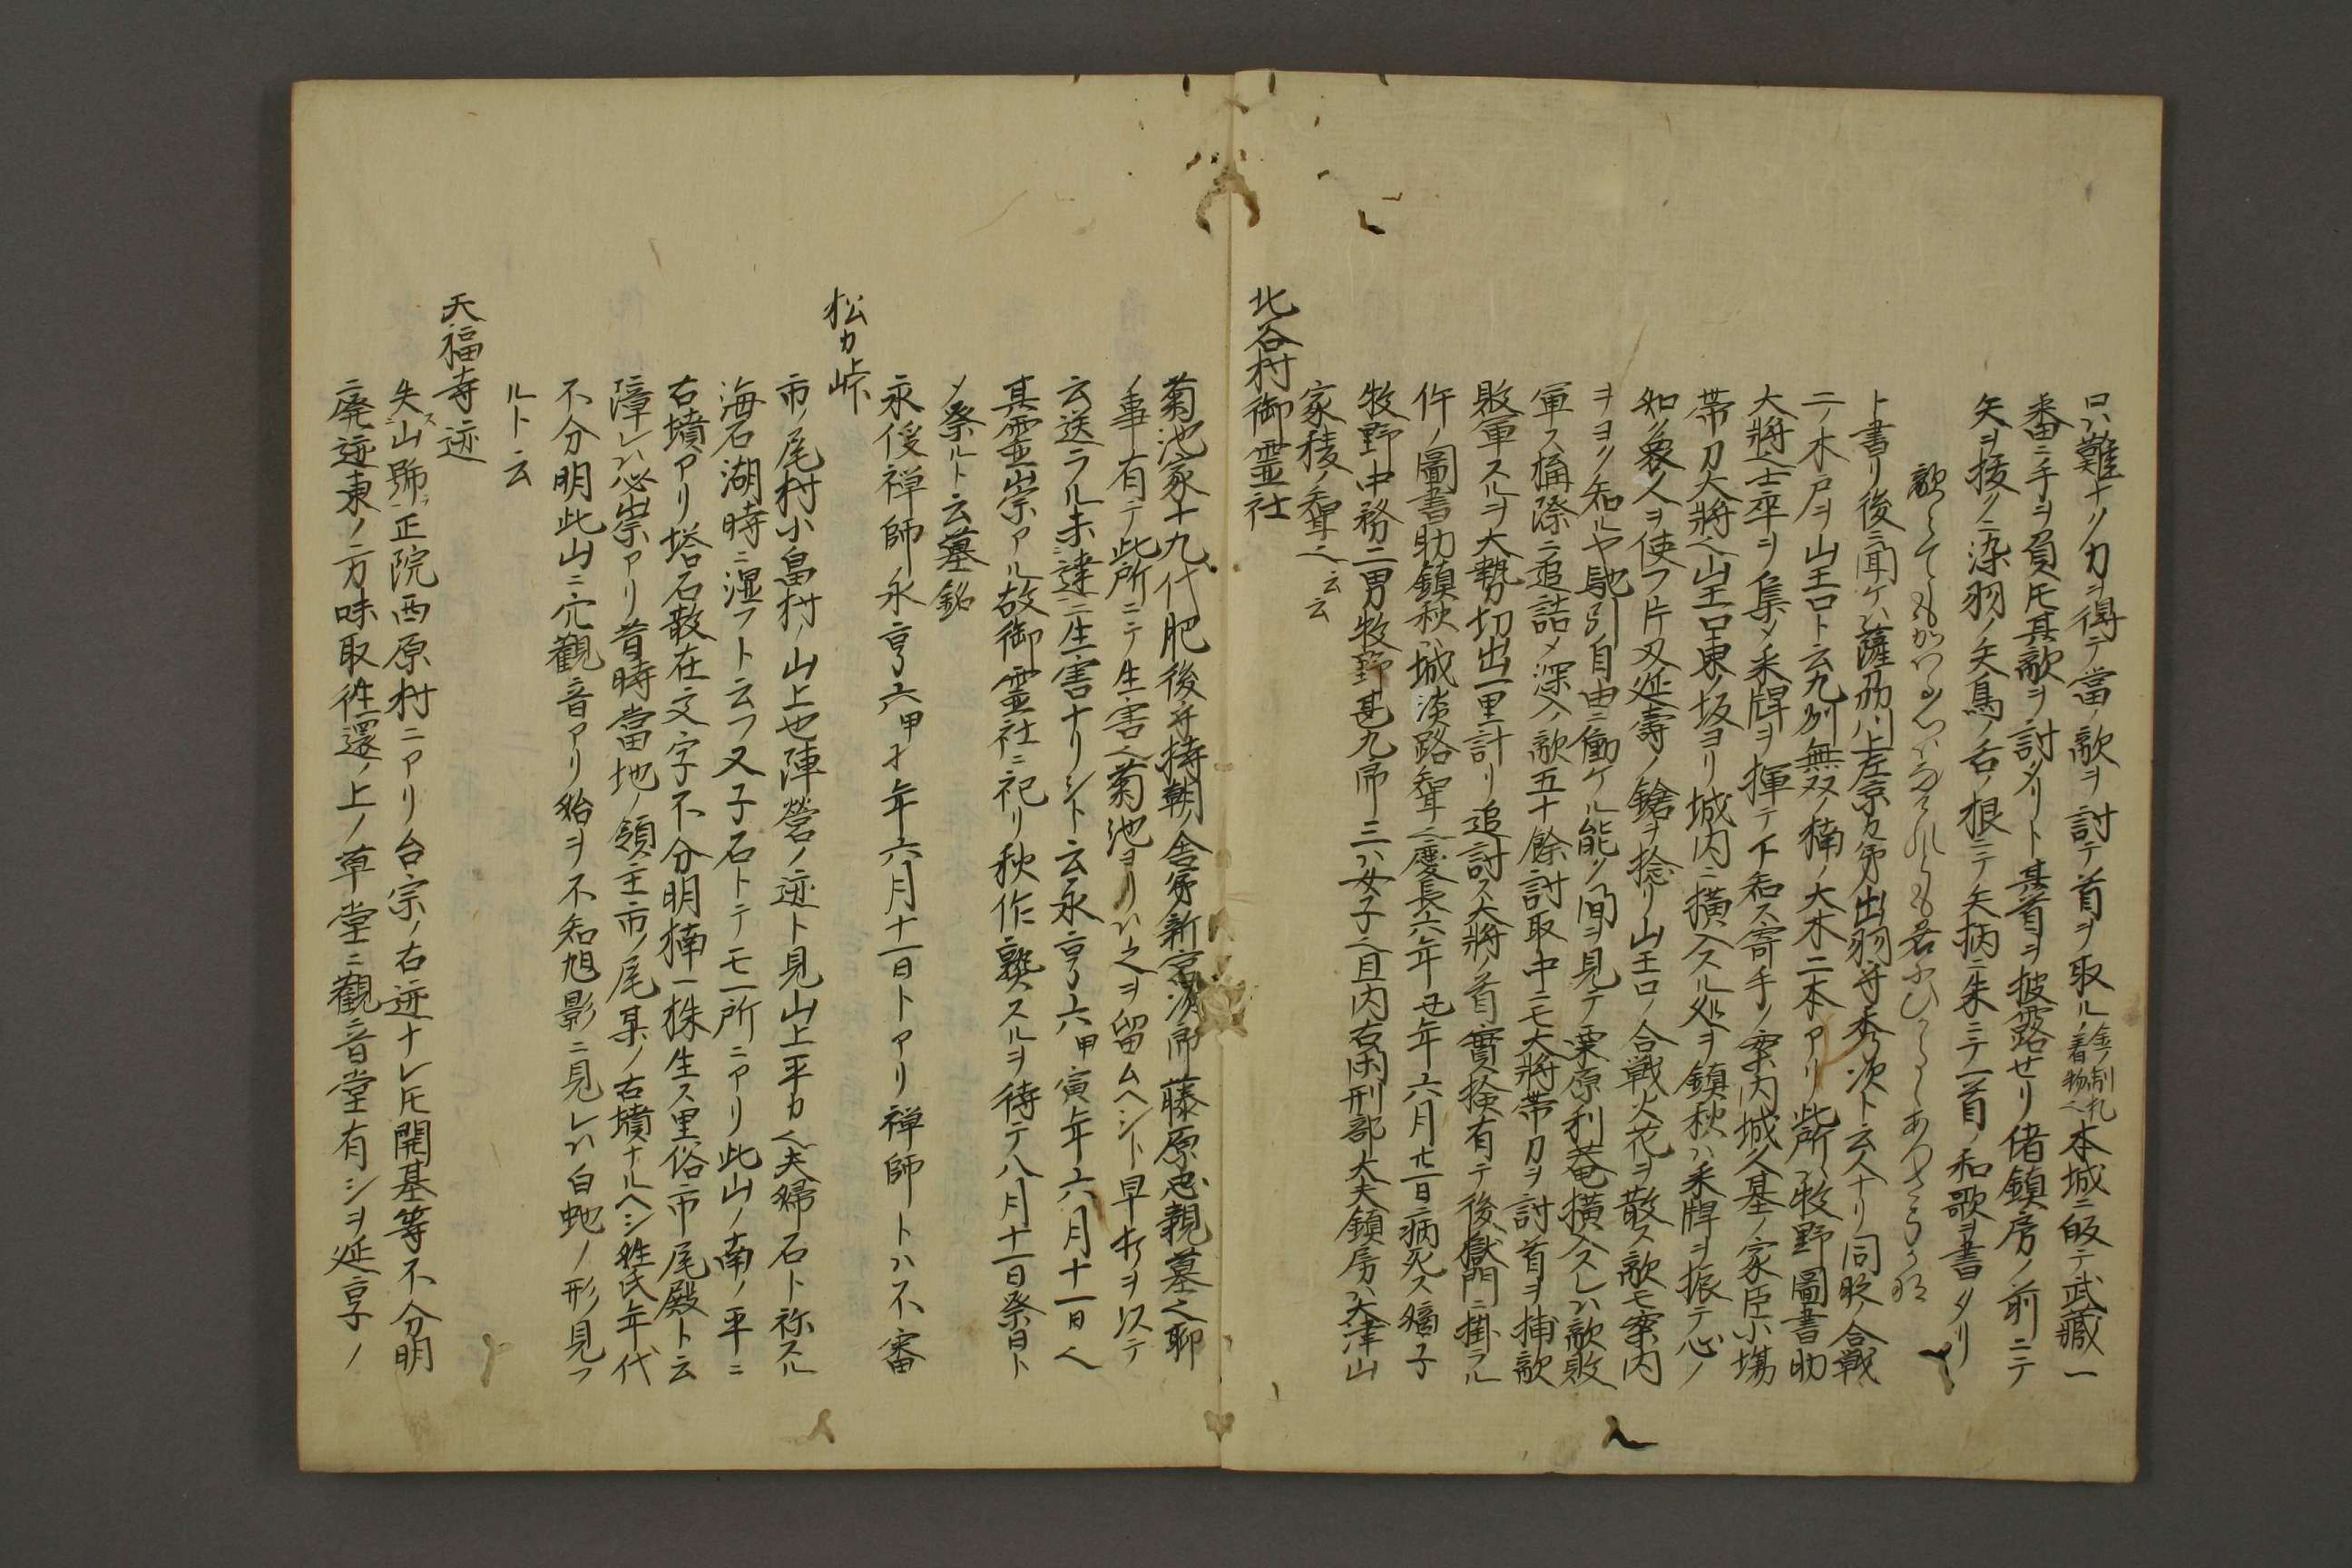 口ハ難ナリ力ヲ得テ當ノ敵ヲ討テ首ヲ取ル金ノ制札ノ着物ヘ本城ニ皈テ武藏一
番ニ手ヲ負圧其敵ヲ討タリト其首ヲ披露せリ偖鎮房ノ前ニテ
矢ヲ抜クニ染羽ノ矢鳥ノ舌ノ根ニテ矢柄ニ朱ニテ一首ノ和歌ヲ書タリ
ト書リ後ニ聞ケハ薩刕川上左京カ弟出羽守秀次ト云人ナリ同月ノ合戦
二ノ木戸ヲ山王口ト云九刕無双ノ楠ノ大木二本アリ此所ハ牧野圖書助
大將ヘ士卒ヲ集メ釆牌ヲ揮テ下知ス寄手ノ案内城久基ノ家臣小塲
帯刀大將ヘ山王口東ノ坂ヨリ城内ニ横入スル処ヲ鎮秋ハ釆牌ヲ振テ心ノ
如ク衆人ヲ使フ片又延壽ノ鎗ヲ捻リ山王口ノ合戦火花ヲ散ス敵モ案内
ヲヨク知ルヤ馳引自由ニ働ケル能ク間ヲ見テ栗原利菴横入スレハ敵敗
軍ス桶際ニ追詰メ深入ノ敵五十餘討取中ニモ大將帯刀ヲ討首ヲ捕敵
敗軍スルヲ大勢切出一里計リ追討ス大將ノ首實捡有テ後獄門ニ掛ラル
仵ノ圖書助鎮秋ハ城淡路聟之慶長六年丑年六月廿一日ニ病死ス嫡子
牧野中務二男牧野甚九帋三ハ女子之且内右衛刑部大夫鎮房ハ大津山
家稜ノ聟之云云
北谷村御霊社
菊池家十九代肥後守持朝ノ舎弟新宮次帋藤原忠親墓之聊
ノ事有テ此所ニテ生害之菊池ヨリハ之ヲ留ムヘシト早打ヲ以テ
云送ラル未達ニ生害ナリシト云永亨六甲寅年六月十一日ヘ
其霊崇アル故御霊社ニ祀リ秋作熟スルヲ待テ八月十一日祭日ト
メ祭ルト云墓銘
永俊禅師永亨六甲才年六月十一日トアリ禅師トハ不審
松カ峠
市ノ尾村小畠村ノ山上也陣營ノ迹ト見山上平カ之夫婦石ト称スル
海石湖時ニ湿フト云フ又子石トテモ一所ニアリ此山ノ南ノ平ニ
右墳アリ塔石散在文字不分明楠一株生ス里俗市尾殿ト云
障レハ必崇アリ昔時當地ノ領主市ノ尾某ノ右墳ナルヘシ姓氏年代
不分明此山ニ穴觀音アリ始ヲ不知旭影ニ見レハ白虵ノ形ノ見フ
ルト云
天福寺迹
失ス山號ヲ正院西原村ニアリ台宗ノ右迹ナレ圧開基等不分明
ニ廃迹東ノ方味取徃還ノ上ノ草堂ニ觀音堂有シヲ延享ノ